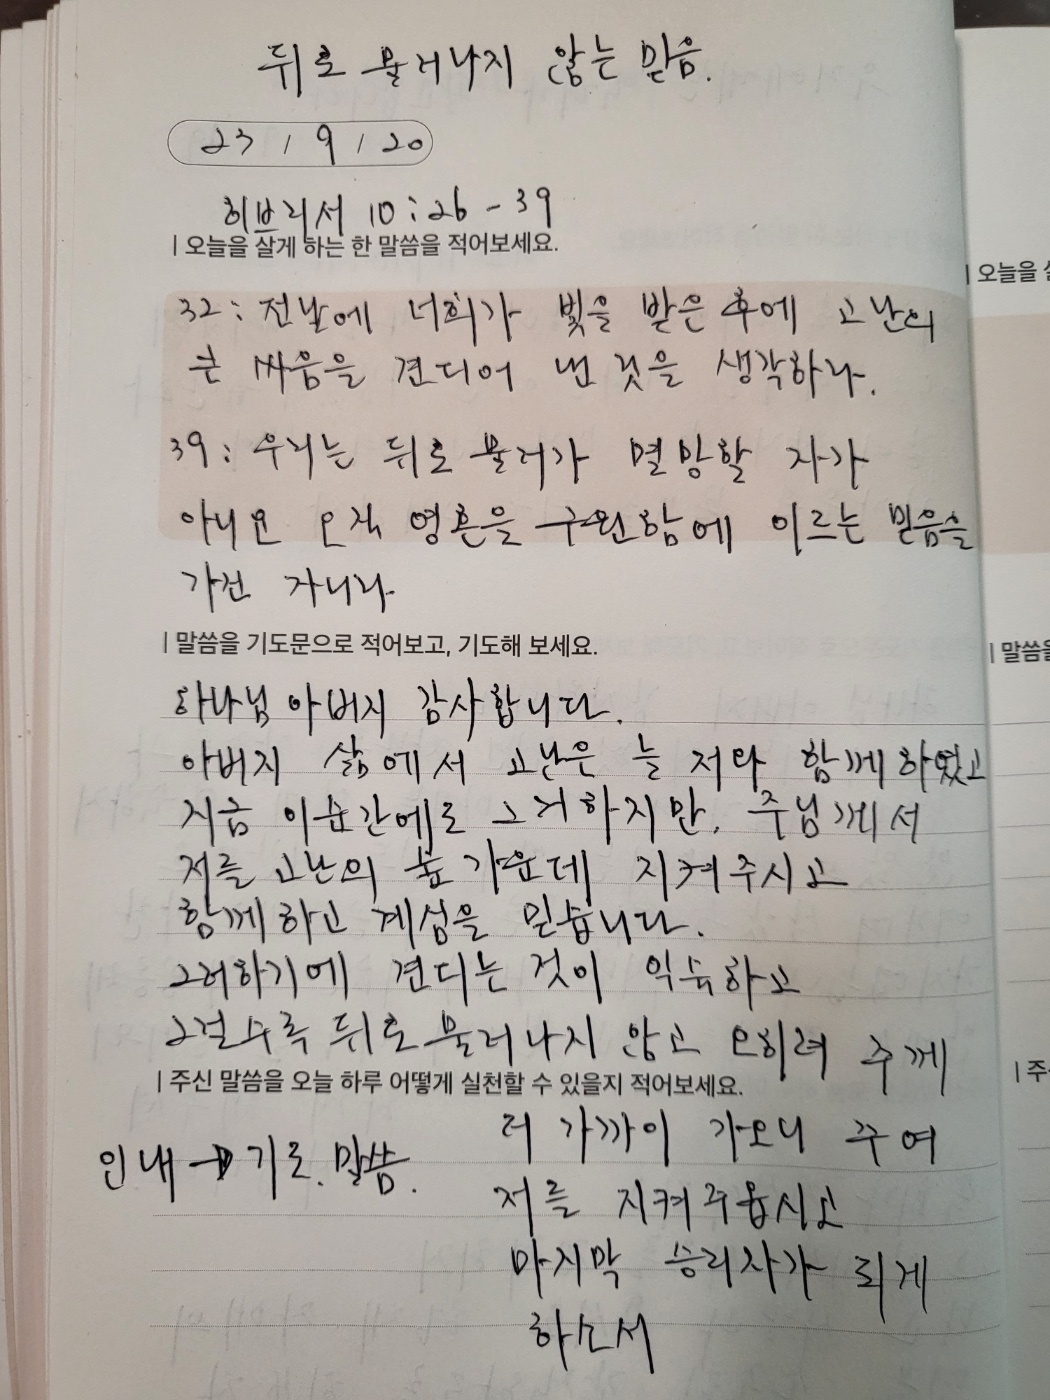 뒤로 물러나지 않는 믿음.
23 / 9 / 20
히브리서 10:26-39
| 오늘을 살게 하는 한 말씀을 적어보세요.
| 오늘을 살
32: 전날에 너희가 빛을 받은 후에 고난의
큰 싸움을 견디어 낸 것을 생각하라.
39: 우리는 뒤로 물러가 멸망할 자가
아니요 오직 영혼을 구원함에 이르는 믿음을
가진 자니라
| 말씀을 기도문으로 적어보고, 기도해 보세요.
| 말씀을
하나님 아버지 감사합니다.
아버지 삶에서 고난은 늘 저와 함께하였고
지금 이순간에도 그러하지만, 주님께서
저를 고난의 늪 가운데 지켜주시고
함께하고 계심을 믿습니다.
그러하기에 견디는 것이 익숙하고
그럴수록 뒤로 물러나지 않고 오히려 주께
| 주신 말씀을 오늘 하루 어떻게 실천할 수 있을지 적어보세요.
| 주
더 가까이 가오니 주여
인내 → 기도. 말씀.
저를 지켜주옵시고
마지막 승리자가 되게
하소서